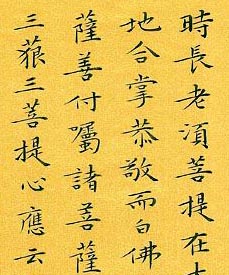 時長老湏菩提在
地合掌恭敬而白佛
薩善付囑諸菩薩
三藐三菩提心應云